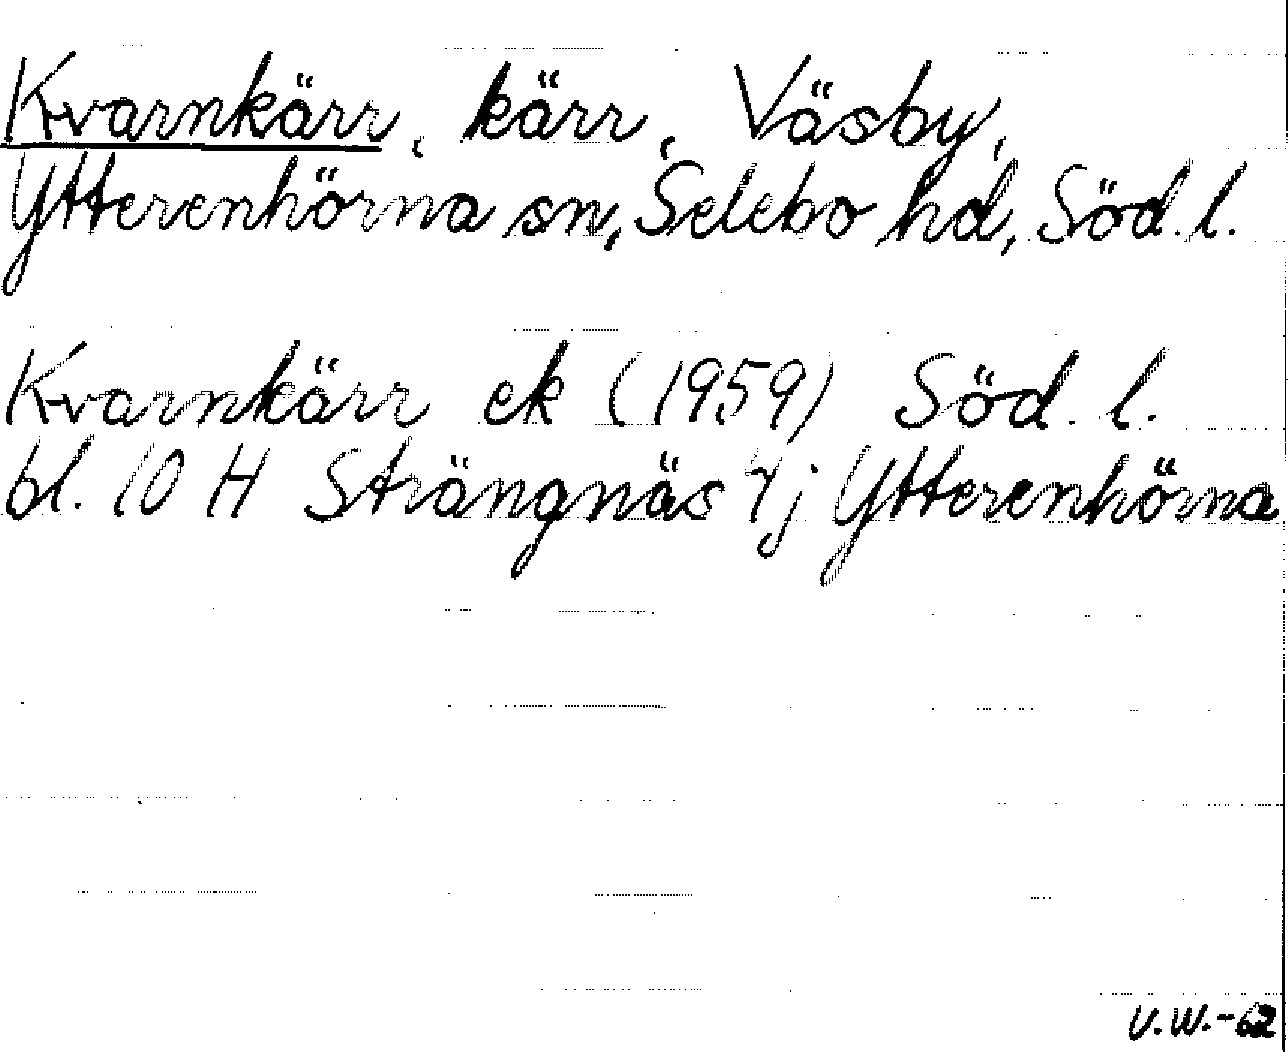 Kvarnkärr, kärr, Väsby,
Ytterenhörna sn, Selebo hd, Söd. l.
Kvarnkärr ek (1959) Söd. l.
bl. 10 H Strängnäs 4j Ytterenhörna
V.W.-62